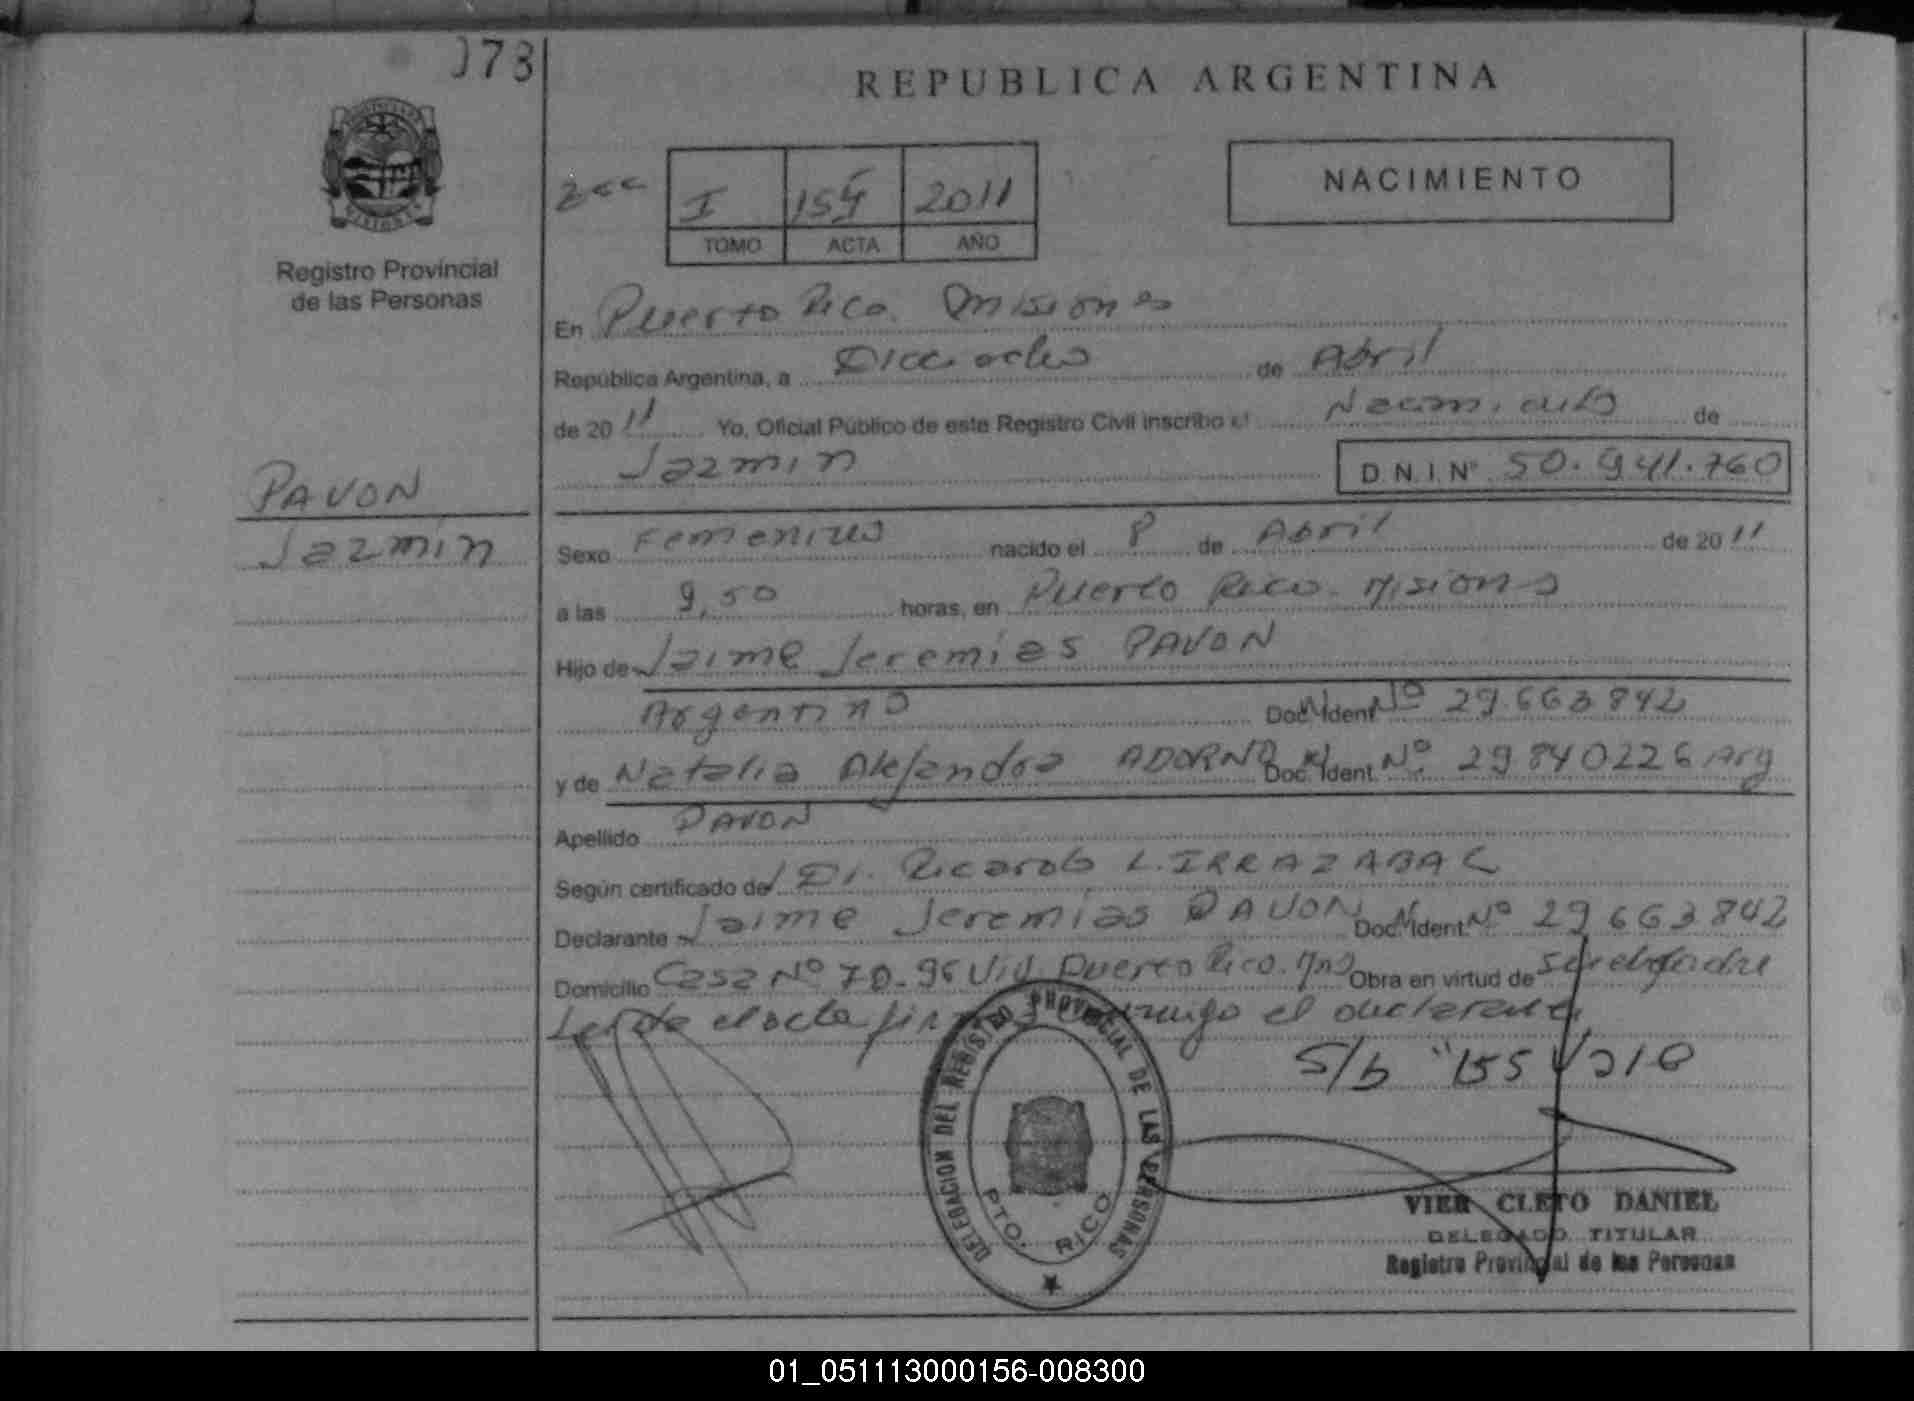 178
REPUBLICA ARGENTINA
I 155 2011
TOMO ACTA AÑO
NACIMIENTO
Registro Provincial
de las Personas
En Puerto Rico. Misiones
República Argentina, a Dieciocho de Abril
de 20 11 Yo, Oficial Público de este Registro Civil inscribo el Nacimiento de
Jazmin D.N.I. Nº 50.941.760
PAVON
Jazmin
Sexo Femenino nacido el 8 de Abril de 20 11
a las 9,50 horas, en Puerto Rico. Misiones
Hijo de Jaime Jeremías PAVON
Argentino Doc. Ident Nº 29.663.842
y de Natalia Alejandra ADORNO Doc. Ident. Nº 29840226 Arg
Apellido PAVON
Según certificado del Dr. Ricardo L. IRRAZABAL
Declarante Jaime Jeremías PAVON Doc. Ident. Nº 29663842
Domicilio Casa Nº 70-96 Viv Puerto Rico. Mns Obra en virtud de ser el padre
Leida el acta firma conmigo el declarante
S/b "155
DELEGACION DEL REGISTRO PROVINCIAL DE LAS PERSONAS
PTO. RICO
VIER CLETO DANIEL
DELEGADO TITULAR
Registro Provincial de las Personas
01_051113000156-008300